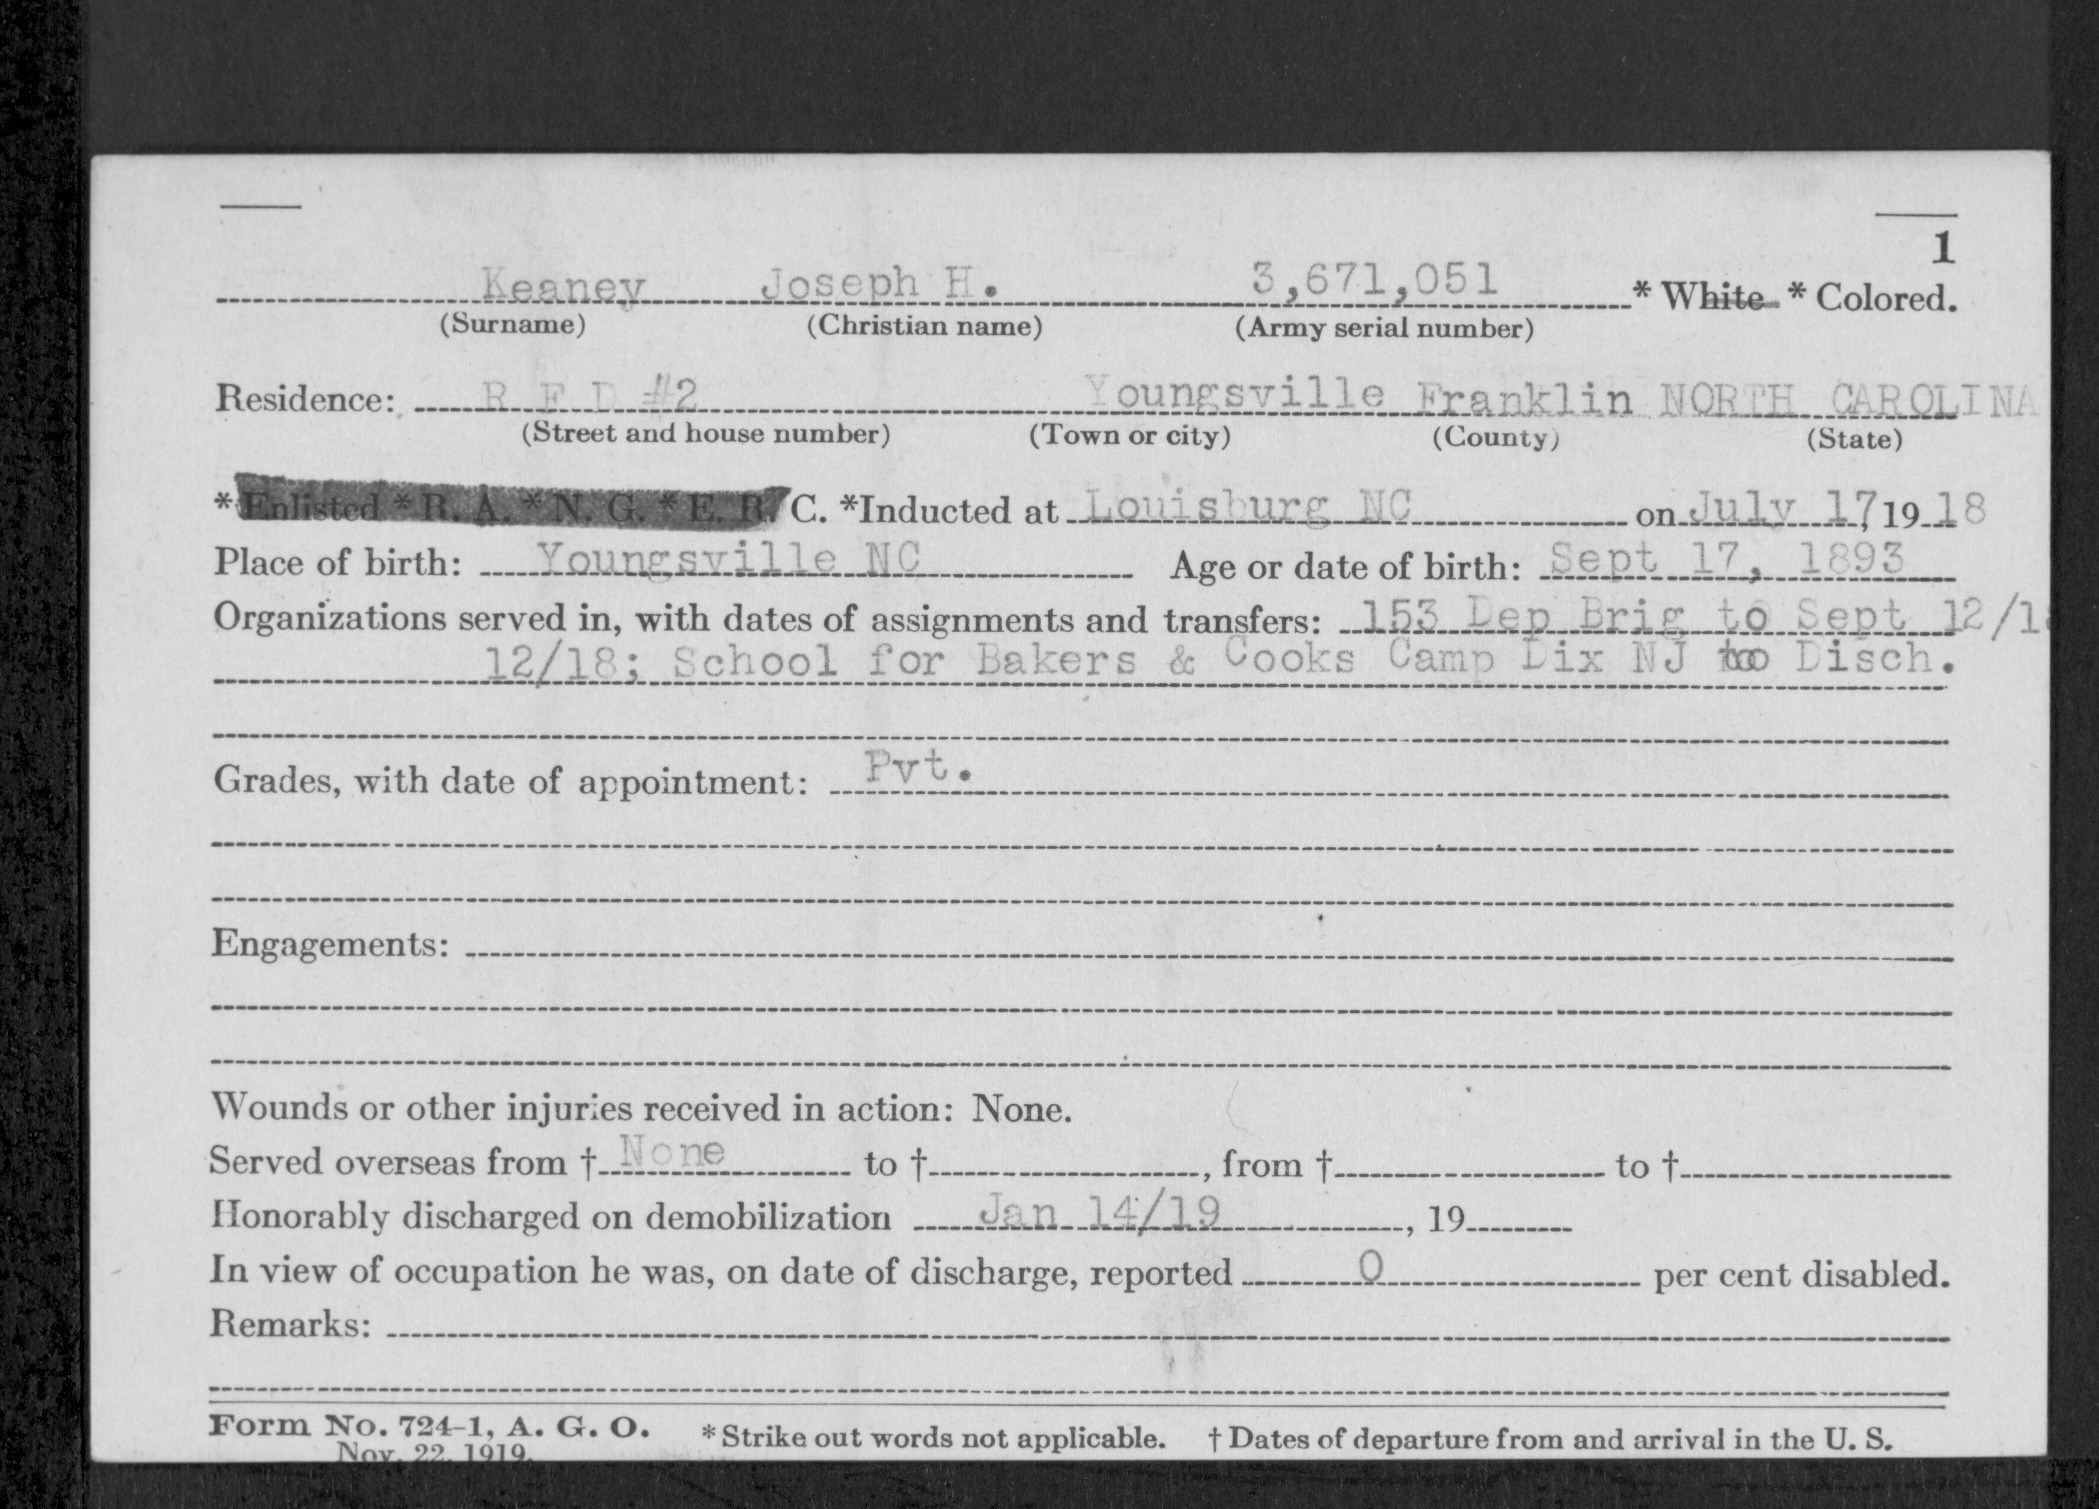 1
Keaney Joseph H. 3,671,051 * White * Colored.
(Surname) (Christian name) (Army serial number)
Residence: R F D #2 Youngsville Franklin NORTH CAROLINA
(Street and house number) (Town or city) (County) (State)
*Enlisted *R. A. *N. G. *E. R. C. *Inducted at Louisburg NC on July 17, 19 18
Place of birth: Youngsville NC Age or date of birth: Sept 17, 1893
Organizations served in, with dates of assignments and transfers: 153 Dep Brig to Sept 12/18
12/18; School for Bakers & Cooks Camp Dix NJ to Disch.
Grades, with date of appointment: Pvt.
Engagements:
Wounds or other injuries received in action: None.
Served overseas from † None to †, from † to †
Honorably discharged on demobilization Jan 14/19, 19
In view of occupation he was, on date of discharge, reported 0 per cent disabled.
Remarks:
Form No. 724-1, A. G. O. *Strike out words not applicable. †Dates of departure from and arrival in the U. S.
Nov. 22, 1919.